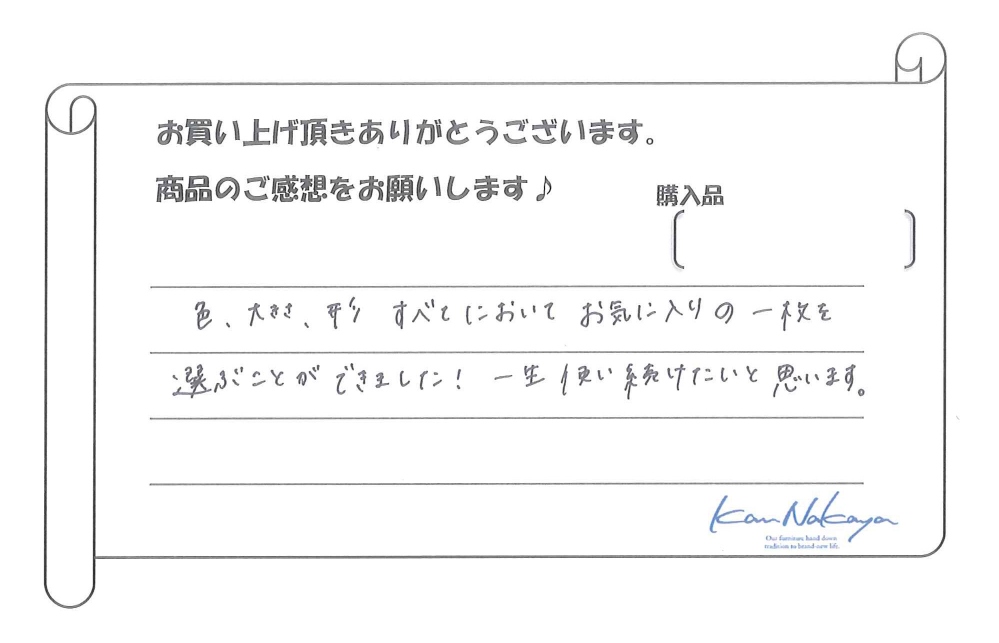 お買い上げ頂きありがとうございます。
商品のご感想をお願いします♪
購入品
色、大きさ、形 すべてにおいて お気に入りの一枚を
選ぶことができました！ 一生使い続けたいと思います。
Kan Nakaya
Our furniture hand down
tradition to brand-new life.